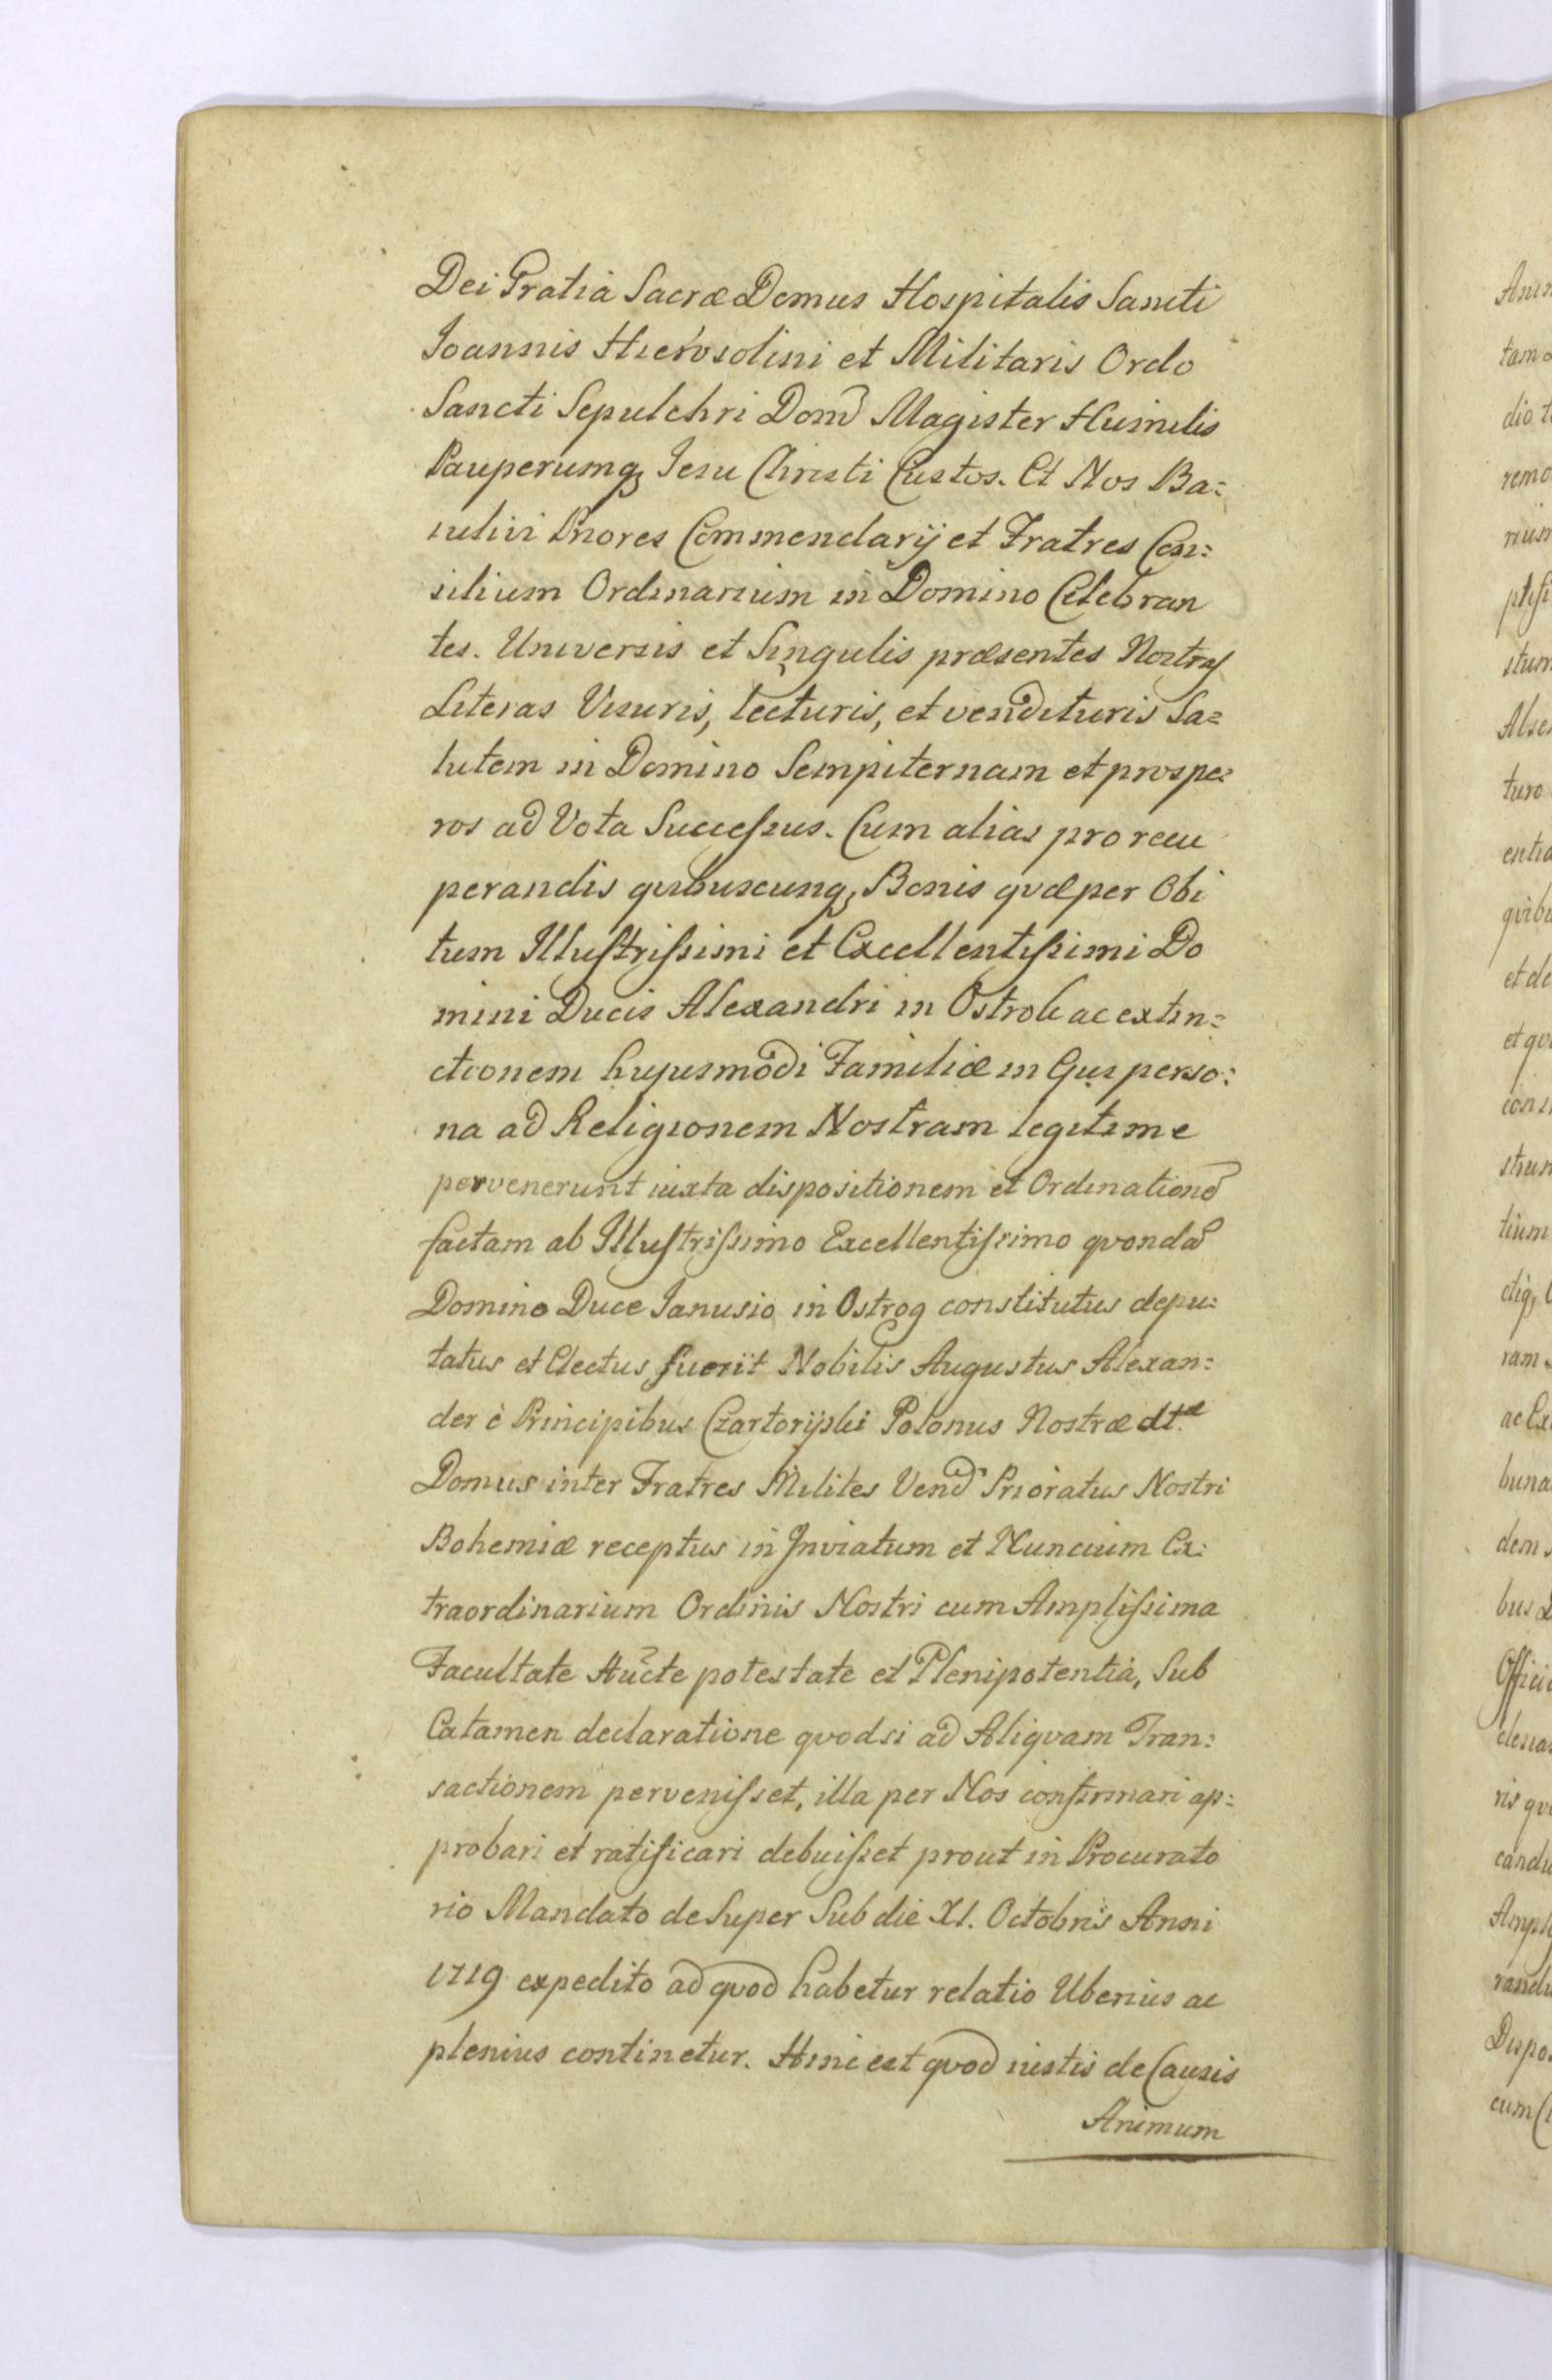 Dei Gratia Sacræ Domus Hospitalis Sancti
Ioannis Hierosolini et Militaris Ordo
Sancti Sepulchri Dom̃ Magister Humilis
Pauperumq; Iesu Christi Custos. Et Nos Ba=
iulivi Priores Commendarij et Fratres Con=
silium Ordinarium in Domino Celebran
tes. Universis et Singulis præsentes Nostras
Literas Visuris, lecturis, et vendituris Sa=
lutem in Domino Sempiternam et prospe=
ros ad Vota Successus. Cum alias pro recu
perandis quibuscunq; Bonis qvæ per Obi
tum Illustrissimi et Excellentissimi Do
mini Ducis Alexandri in Ostrole ac extin=
ctionem hujusmodi Familiæ in Gus perso=
na ad Religionem Nostram legitime
pervenerunt iuxta dispositionem et Ordinationẽ
factam ab Illustrissimo Excellentissimo qvondã
Domino Duce Ianusio in Ostrog constitutus depu=
tatus et Electus fuerit Nobilis Augustus Alexan=
der è Principibus Czartoryski Polonus Nostræ dtæ
Domus inter Fratres Milites Vend̃ Prioratus Nostri
Bohemiæ receptus in Inviatum et Nuncium Ex=
traordinarium Ordinis Nostri cum Amplissima
Facultate Aũcte potestate et Plenipotentiâ, Sub
Eatamen declaratione qvodsi ad Aliqvam Tran=
sactionem pervenisset, illa per Nos confirmari ap=
probari et ratificari debuisset prout in Procurato
rio Mandato de Super Sub die XI. Octobris Anni
1719 expedito ad qvod habetur relatio Uberius ac
plenius continetur. Hinc est qvod iustis de Causis
Animum